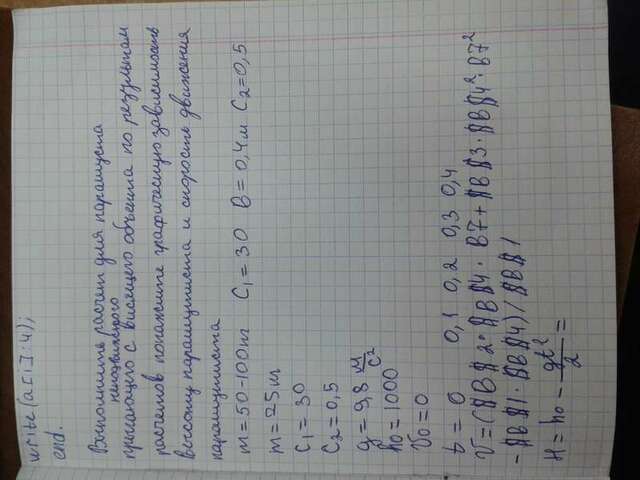 write(a[i]:4);
end.
Выполните расчет для парашуста
неподвижного
прыгающего с висящего объекта по результам
расчетов покажите графическую зависимость
высоту парашутиста и скорость движения
парашутиста
m = 50-100кг C₁ = 30 B = 0,4м C₂=0,5
m = 25кг
C₁ = 30
C₂ = 0,5
g = 9,8 м/с²
h₀ = 1000
V₀ = 0
t = 0 0,1 0,2 0,3 0,4
V = ($B$2·$B$4·B7+$B$3·$B$4²·B7²
-$B$1·$B$4)/$B$1
H = h₀ - gt²/2 =